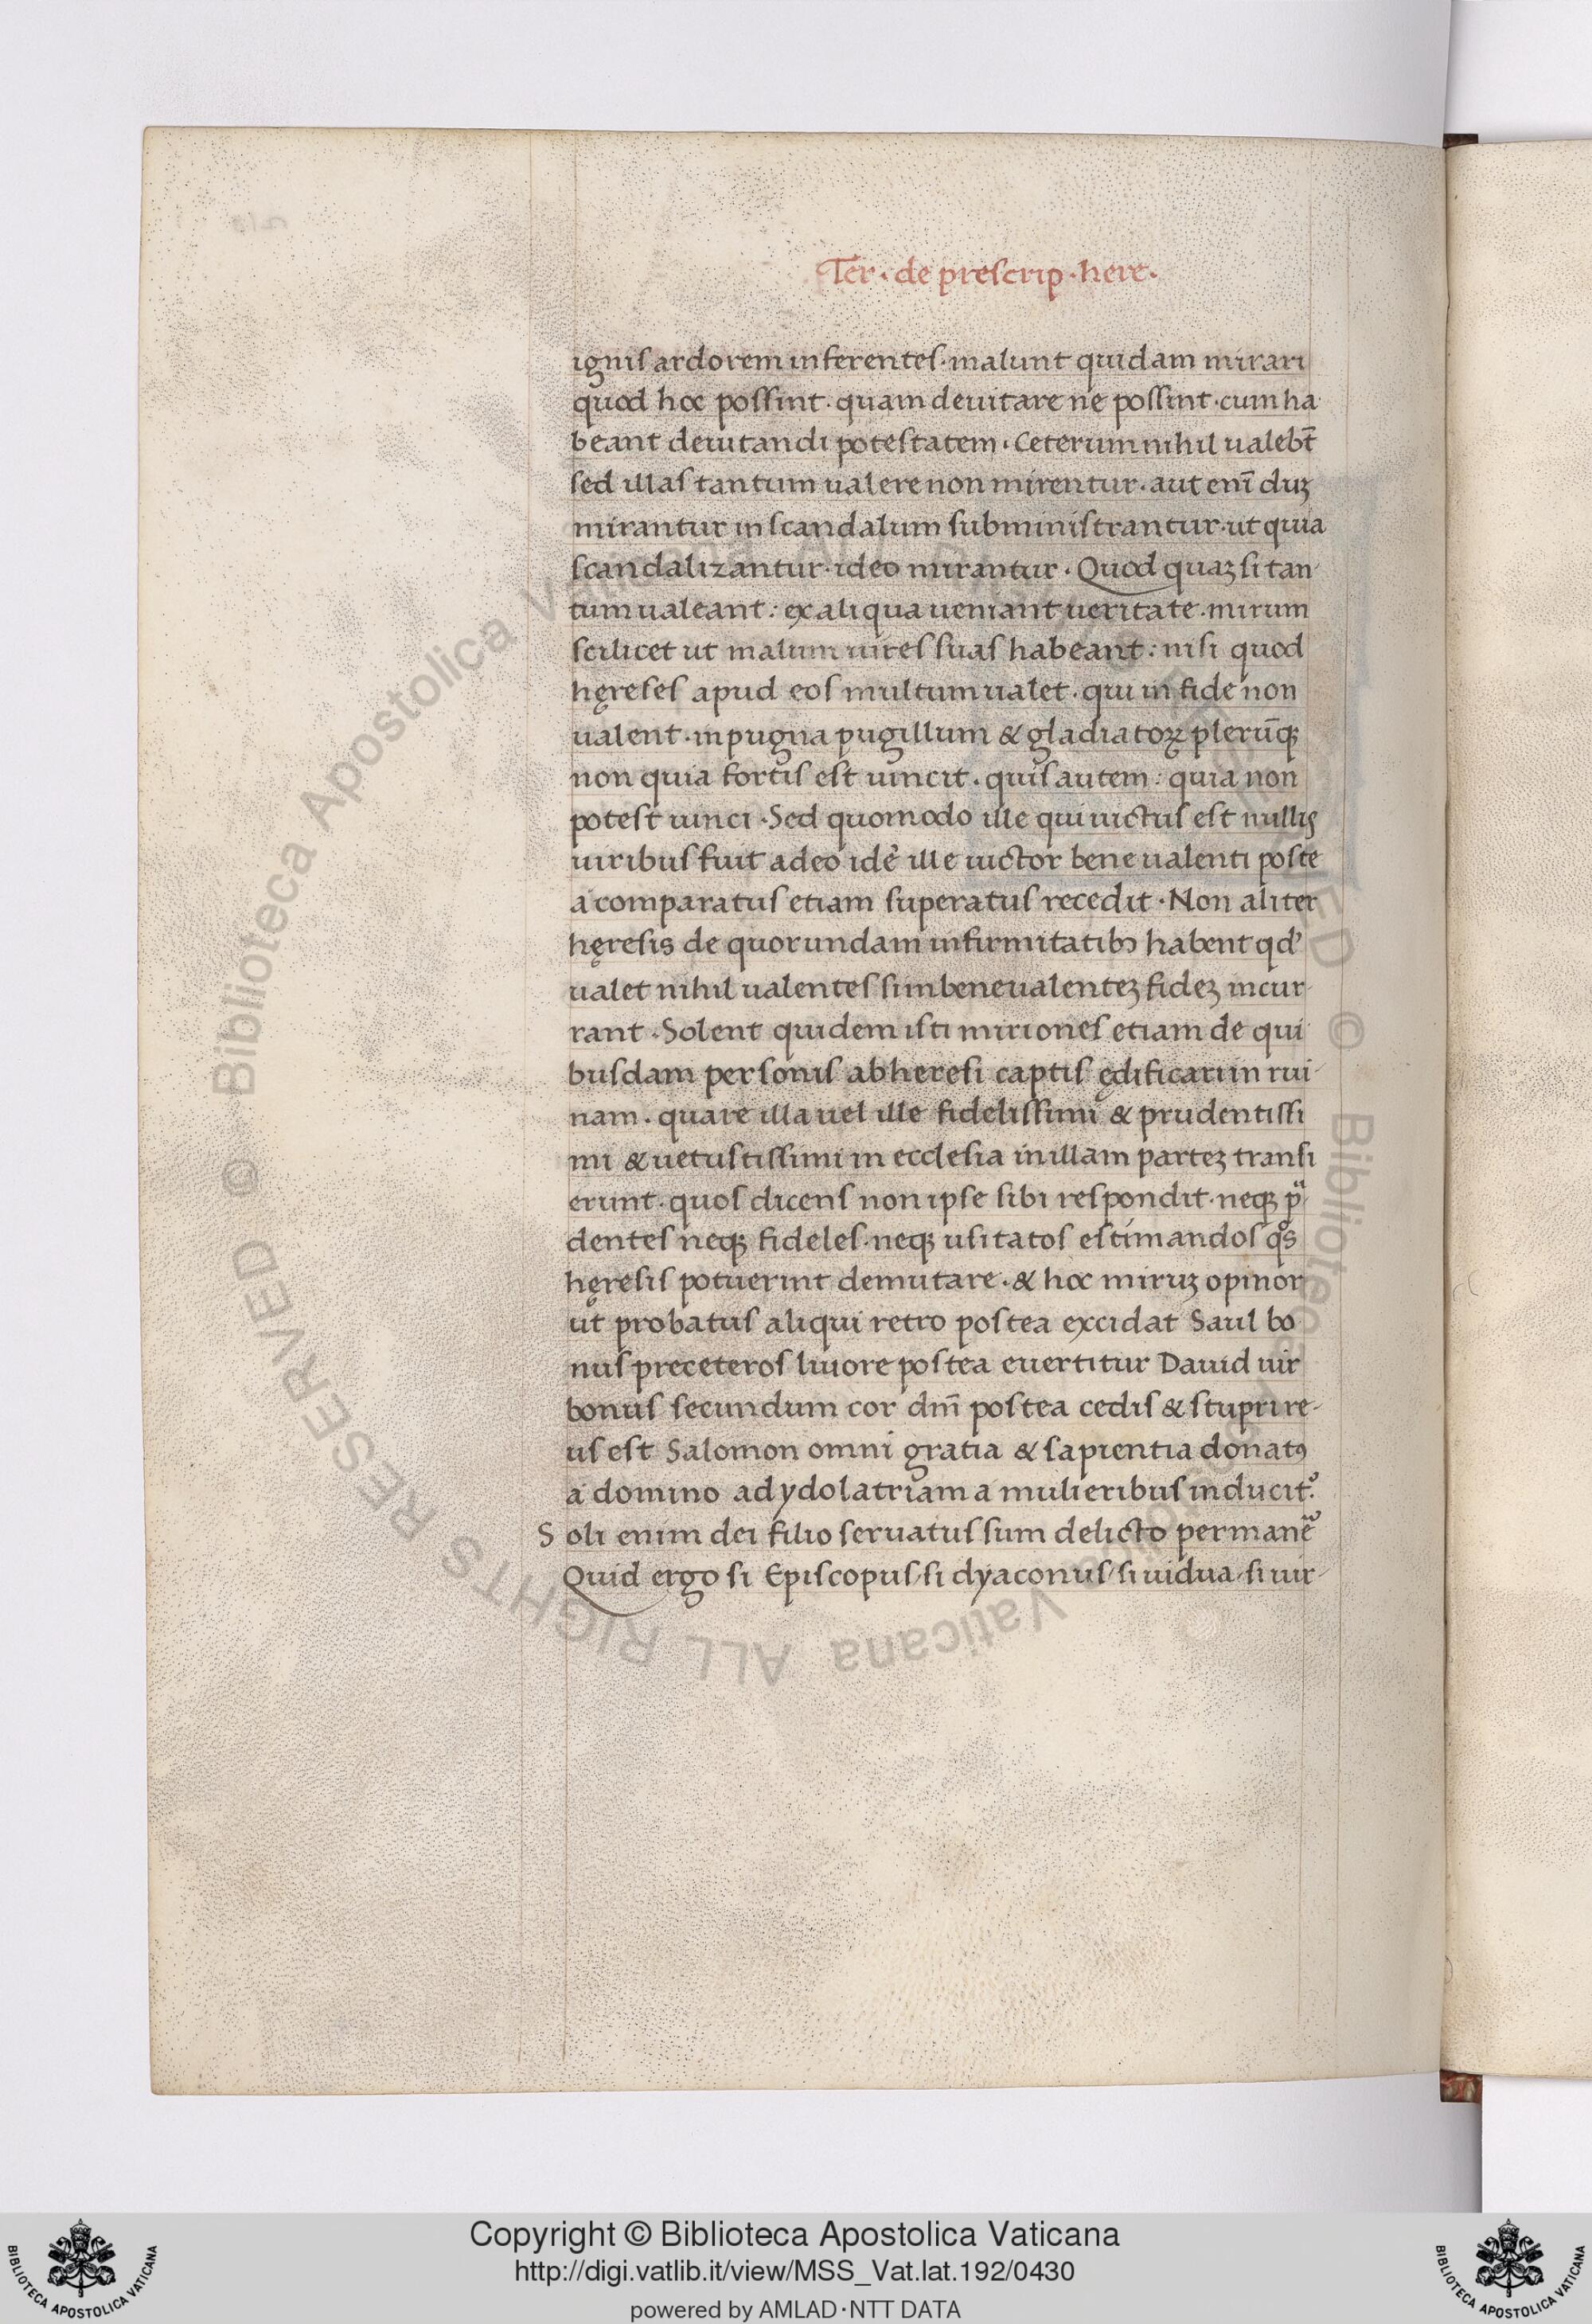 Ter · de prescrip · here ·
ignis ardorem inferentes · malunt quidam mirari
quod hoc possint · quam deuitare ne possint · cum ha
beant deuitandi potestatem · Ceterum nihil ualebt̄
sed illas tantum ualere non mirentur · aut enī duꝫ
mirantur in scandalum subministrantur · ut quia
scandalizantur · ideo mirantur · Quod quaꝫ si tan
tum ualeant : ex aliqua ueniant ueritate · mirum
scilicet ut malum uires suas habeant : nisi quod
hęreses apud eos multum ualet · qui in fide non
ualent · in pugna pugillum & gladiatoꝝ plerūqꝫ
non quia fortis est uincit · quis autem : quia non
potest uinci · Sed quomodo ille qui uictus est nullis
uiribus fuit adeo idē ille uictor bene ualenti poste
a comparatus etiam superatus recedit · Non aliter
hęresis de quorundam infirmitatibꝫ habent qd'
ualet nihil ualentes sim bene ualenteꝫ fideꝫ incur
rant · Solent quidem isti miriones etiam de qui
busdam personis ab heresi captis ędificari in rui
nam · quare illa uel ille fidelissimi & prudentissi
mi & uetustissimi in ecclesia in illam parteꝫ transi
erunt · quos dicens non ipse sibi respondit · neqꝫ pͣ
dentes neqꝫ fideles · neqꝫ usitatos estimandos qͦs
hęresis potuerint demutare · & hoc miruꝫ opinor
ut probatus aliqui retro postea excidat Saul bo
nus preceteros liuore postea euertitur Dauid uir
bonus secundum cor dn̄i postea cedis & stupri re
us est Salomon omni gratia & sapientia donatꝯ
a domino ad ydolatriam a mulieribus inducit᷑
Soli enim dei filio seruatus sum delicto permane᷑
Quid ergo si Episcopus / si dyaconus / si uidua / si uir
© Biblioteca Apostolica Vaticana ALL RIGHTS RESERVED © Biblioteca Apostolica Vaticana ALL RIGHTS RESERVED
BIBLIOTECA APOSTOLICA VATICANA
Copyright © Biblioteca Apostolica Vaticana
http://digi.vatlib.it/view/MSS_Vat.lat.192/0430
powered by AMLAD·NTT DATA
BIBLIOTECA APOSTOLICA VATICANA